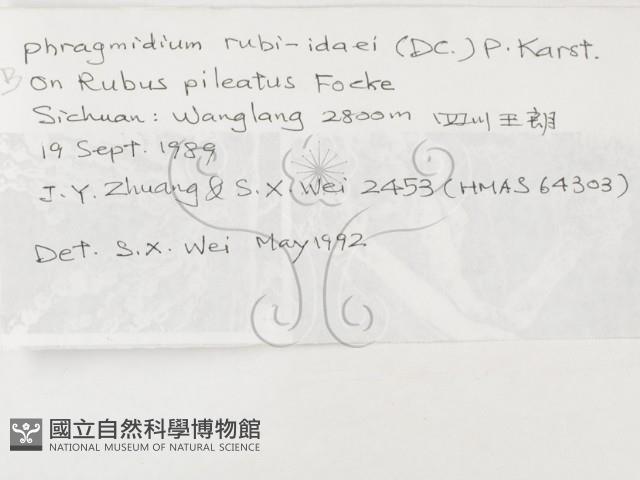 phragmidium rubi-idaei (DC.) P. Karst.
B
on Rubus pileatus Focke
Sichuan: Wanglang 2800m 四川王朗
19 Sept. 1989
J. Y. Zhuang & S. X. Wei 2453 (HMAS 64303)
Det. S. X. Wei May 1992
國立自然科學博物館
NATIONAL MUSEUM OF NATURAL SCIENCE